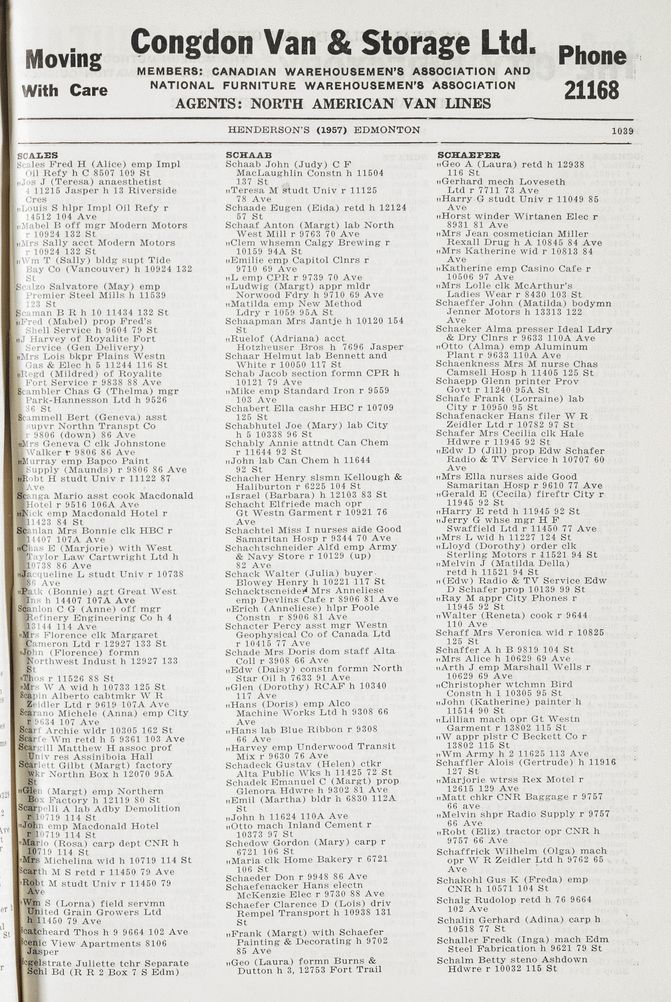 Moving
With Care
Congdon Van & Storage Ltd.
MEMBERS: CANADIAN WAREHOUSEMEN'S ASSOCIATION AND
NATIONAL FURNITURE WAREHOUSEMEN'S ASSOCIATION
AGENTS: NORTH AMERICAN VAN LINES
Phone
21168
HENDERSON'S (1957) EDMONTON
1039
SCALES
Scales Fred H (Alice) emp Impl
Oil Refy h C 8507 109 St
„Jos J (Teresa) anaesthetist
11215 Jasper h 13 Riverside
Cres
„Louis S hlpr Impl Oil Refy r
14512 104 Ave
„Mabel B off mgr Modern Motors
r 10924 132 St
„Mrs Sally acct Modern Motors
r 10924 132 St
„Wm T (Sally) bldg supt Tide
Bay Co (Vancouver) h 10924 132
St
Scalzo Salvatore (May) emp
Premier Steel Mills h 11539
123 St
Scaman B R h 10 11434 132 St
„Fred (Mabel) prop Fred's
Shell Service h 9604 79 St
„J Harvey of Royalite Fort
Service (Gen Delivery)
„Mrs Lois bkpr Plains Westn
Gas & Elec h 5 11244 116 St
„Regd (Mildred) of Royalite
Fort Service r 9838 88 Ave
Scambler Chas G (Thelma) mgr
Park-Hannesson Ltd h 9526
86 St
Scammell Bert (Geneva) asst
supvr Northn Transpt Co
r 9806 (down) 86 Ave
„Mrs Geneva C clk Johnstone
Walker r 9806 86 Ave
„Murray emp Bapco Paint
Supply (Maunds) r 9806 86 Ave
„Robt H studt Univ r 11122 87
Ave
Scanga Mario asst cook Macdonald
Hotel r 9516 106A Ave
„Nick emp Macdonald Hotel r
11423 84 St
Scanlan Mrs Bonnie clk HBC r
14407 107A Ave
„Chas E (Marjorie) with West
Taylor Law Cartwright Ltd h
10738 86 Ave
„Jacqueline L studt Univ r 10738
86 Ave
„Patk (Bonnie) agt Great West
Ins h 14407 107A Ave
Scanlon C G (Anne) off mgr
Refinery Engineering Co h 4
13144 114 Ave
„Mrs Florence clk Margaret
Cameron Ltd r 12927 133 St
„John (Florence) formn
Northwest Indust h 12927 133
St
„Thos r 11526 88 St
„Mrs W A wid h 10733 125 St
Scapin Alberto cabtmkr W R
Zeidler Ltd r 9619 107A Ave
Scarano Michele (Anna) emp City
r 9634 107 Ave
Scarf Archie wldr 10305 162 St
Scarfe Wm retd h 5 9361 103 Ave
Scargill Matthew H assoc prof
Univ res Assiniboia Hall
Scarlett Gilbt (Margt) factory
wkr Northn Box h 12070 95A
St
„Glen (Margt) emp Northern
Box Factory h 12119 80 St
Scarpelli A lab Adby Demolition
r 10719 114 St
„John emp Macdonald Hotel
r 10719 114 St
„Mario (Rosa) carp dept CNR h
10719 114 St
„Mrs Michelina wid h 10719 114 St
Scarth M S retd r 11450 79 Ave
„Robt M studt Univ r 11450 79
Ave
„Wm S (Lorna) field servmn
United Grain Growers Ltd
h 11450 79 Ave
Scatcheard Thos h 9 9664 102 Ave
Scenic View Apartments 8106
Jasper
Scgelstrate Juliette tchr Separate
Schl Bd (R R 2 Box 7 S Edm)
SCHAAB
Schaab John (Judy) C F
MacLaughlin Constn h 11504
137 St
„Teresa M studt Univ r 11125
78 Ave
Schaade Eugen (Eida) retd h 12124
57 St
Schaaf Anton (Margt) lab North
West Mill r 9763 70 Ave
„Clem whsemn Calgy Brewing r
10159 94A St
„Emilie emp Capitol Clnrs r
9710 69 Ave
„L emp CPR r 9739 70 Ave
„Ludwig (Margt) appr mldr
Norwood Fdry h 9710 69 Ave
„Matilda emp New Method
Ldry r 1059 95A St
Schaapman Mrs Jantje h 10120 154
St
„Ruelof (Adriana) acct
Hotzhueser Bros h 7696 Jasper
Schaar Helmut lab Bennett and
White r 10050 117 St
Schab Jacob section formn CPR h
10121 79 Ave
„Mike emp Standard Iron r 9559
103 Ave
Schabert Ella cashr HBC r 10709
125 St
Schabhutel Joe (Mary) lab City
h 5 10338 96 St
Schably Annie attndt Can Chem
r 11644 92 St
„John lab Can Chem h 11644
92 St
Schacher Henry slsmn Kellough &
Haliburton r 6225 104 St
„Israel (Barbara) h 12103 83 St
Schacht Elfriede mach opr
Gt Westn Garment r 10921 76
Ave
Schachtel Miss I nurses aide Good
Samaritan Hosp r 9344 70 Ave
Schachtschneider Alfd emp Army
& Navy Store r 10129 (up)
82 Ave
Schack Walter (Julia) buyer
Blowey Henry h 10221 117 St
Schacktschneider Mrs Anneliese
emp Devlins Cafe r 8906 81 Ave
„Erich (Anneliese) hlpr Poole
Constn r 8906 81 Ave
Schacter Percy asst mgr Westn
Geophysical Co of Canada Ltd
r 10415 77 Ave
Schade Mrs Doris dom staff Alta
Coll r 3908 66 Ave
„Edw (Daisy) constn formn North
Star Oil h 7633 91 Ave
„Glen (Dorothy) RCAF h 10340
117 Ave
„Hans (Doris) emp Alco
Machine Works Ltd h 9308 66
Ave
„Hans lab Blue Ribbon r 9308
66 Ave
„Harvey emp Underwood Transit
Mix r 9630 76 Ave
Schadeck Gustav (Helen) ctkr
Alta Public Wks h 11425 72 St
Schadek Emanuel C (Margt) prop
Glenora Hdwre h 9302 81 Ave
„Emil (Martha) bldr h 6830 112A
St
„John h 11624 110A Ave
„Otto mach Inland Cement r
10373 97 St
Schedow Gordon (Mary) carp r
6721 106 St
„Maria clk Home Bakery r 6721
106 St
Schaeder Don r 9948 86 Ave
Schaefenacker Hans electn
McKenzie Elec r 9730 88 Ave
Schaefer Clarence D (Lois) driv
Rempel Transport h 10938 131
St
„Frank (Margt) with Schaefer
Painting & Decorating h 9702
85 Ave
„Geo (Laura) formn Burns &
Dutton h 3, 12753 Fort Trail
SCHAEFER
„Geo A (Laura) retd h 12938
116 St
„Gerhard mech Loveseth
Ltd r 7711 73 Ave
„Harry G studt Univ r 11049 85
Ave
„Horst winder Wirtanen Elec r
8931 81 Ave
„Mrs Jean cosmetician Miller
Rexall Drug h A 10845 84 Ave
„Mrs Katherine wid r 10813 84
Ave
„Katherine emp Casino Cafe r
10506 97 Ave
„Mrs Lolle clk McArthur's
Ladies Wear r 8430 103 St
Schaeffer John (Matilda) bodymn
Jenner Motors h 13313 122
Ave
Schaeker Alma presser Ideal Ldry
& Dry Clnrs r 9633 110A Ave
„Otto (Alma) emp Aluminum
Plant r 9633 110A Ave
Schaenkness Mrs M nurse Chas
Camsell Hosp h 11405 125 St
Schaepp Glenn printer Prov
Govt r 11240 95A St
Schafe Frank (Lorraine) lab
City r 10950 95 St
Schafenacker Hans filer W R
Zeidler Ltd r 10782 97 St
Schafer Mrs Cecilia clk Hale
Hdwre r 11945 92 St
„Edw D (Jill) prop Edw Schafer
Radio & TV Service h 10707 60
Ave
„Mrs Ella nurses aide Good
Samaritan Hosp r 9610 77 Ave
„Gerald E (Cecila) fireftr City r
11945 92 St
„Harry E retd h 11945 92 St
„Jerry G whse mgr H F
Swaffield Ltd r 11450 77 Ave
„Mrs L wid h 11227 124 St
„Lloyd (Dorothy) order clk
Sterling Motors r 11521 94 St
„Melvin J (Matilda Della)
retd h 11521 94 St
„(Edw) Radio & TV Service Edw
D Schafer prop 10139 99 St
„Ray M appr City Phones r
11945 92 St
„Walter (Reneta) cook r 9644
110 Ave
Schaff Mrs Veronica wid r 10825
125 St
Schaffer A h B 9819 104 St
„Mrs Alice h 10629 69 Ave
„Arth J emp Marshall Wells r
10629 69 Ave
„Christopher wtchmn Bird
Constn h 1 10305 95 St
„John (Katherine) painter h
11514 90 St
„Lillian mach opr Gt Westn
Garment r 13802 115 St
„W appr plstr C Beckett Co r
13802 115 St
„Wm Army h 2 11625 113 Ave
Schaffler Alois (Gertrude) h 11916
127 St
„Marjorie wtrss Rex Motel r
12615 129 Ave
„Matt chkr CNR Baggage r 9757
66 ave
„Melvin shpr Radio Supply r 9757
66 Ave
„Robt (Eliz) tractor opr CNR h
9757 66 Ave
Schaffrick Wilhelm (Olga) mach
opr W R Zeidler Ltd h 9762 65
Ave
Schakohl Gus K (Freda) emp
CNR h 10571 104 St
Schalg Rudolop retd h 76 9664
102 Ave
Schalin Gerhard (Adina) carp h
10518 77 St
Schaller Fredk (Inga) mach Edm
Steel Fabrication h 9621 79 St
Schalm Betty steno Ashdown
Hdwre r 10032 115 St